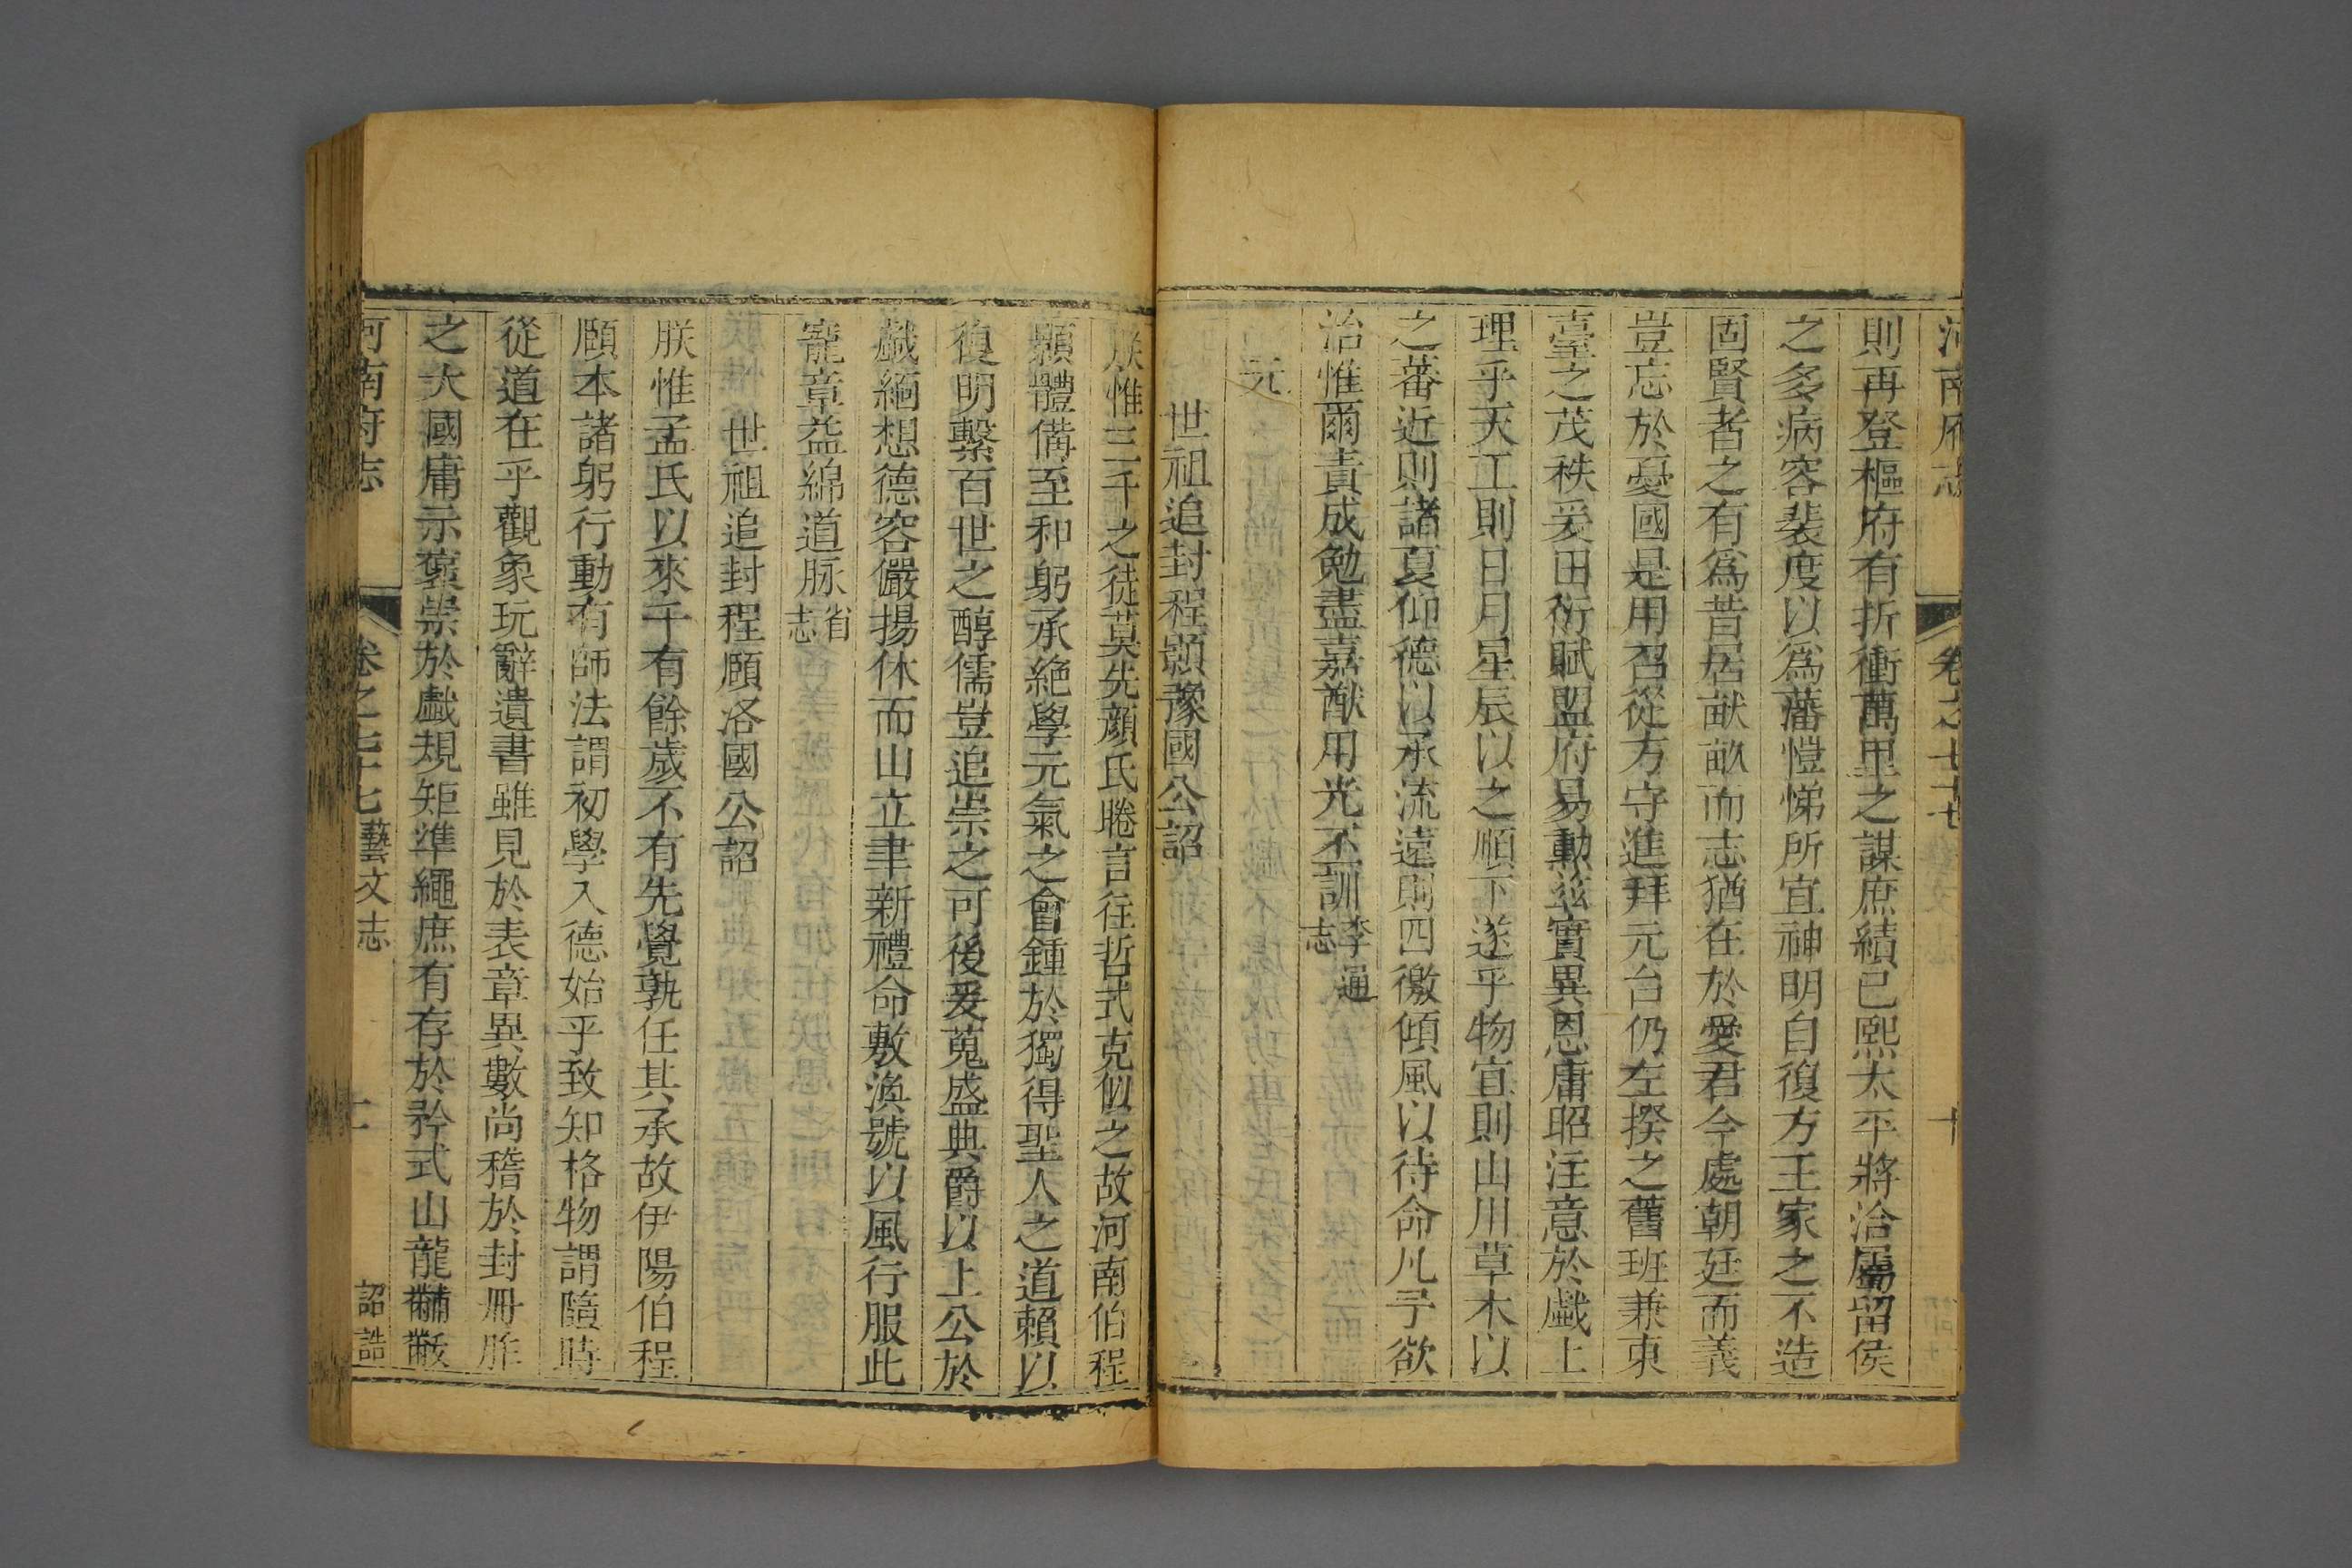 河南府志 卷之七十七 十
則再登樞府有折衝萬里之謀庶績已熙太平將洽屬留侯
之多病容裴度以爲藩愷悌所宜神明自復方王家之不造
固賢者之有爲昔居畎畝而志猶在於愛君今處朝廷而義
豈忘於憂國是用召從方守進拜元台仍左揆之舊班兼東
臺之茂秩爰田衍賦盟府易勳兹實異恩庸昭注意於戲上
理乎天工則日月星辰以之順下遂乎物宜則山川草木以
之蕃近則諸夏仰德以承流遠則四徼傾風以待命凡予欲
治惟爾責成勉盡嘉猷用光丕訓李通志
元
世祖追封程顥豫國公詔
朕惟三千之徒莫先顔氏睠言往哲式克似之故河南伯程
顥體備至和躬承絶學元氣之會鍾於獨得聖人之道賴以
復明繫百世之醇儒豈追崇之可後爰蒐盛典爵以上公於
戲緬想德容儼揚休而山立聿新禮命敷渙號以風行服此
寵章益綿道脉省志
世祖追封程頤洛國公詔
朕惟孟氏以來千有餘歲不有先覺孰任其承故伊陽伯程
頤本諸躬行動有師法謂初學入德始乎致知格物謂隨時
從道在乎觀象玩辭遺書雖見於表章異數尚稽於封冊胙
之大國庸示褒崇於戲規矩準繩庶有存於矜式山龍黼黻
河南府志 卷之七十七 藝文志 十一 詔誥